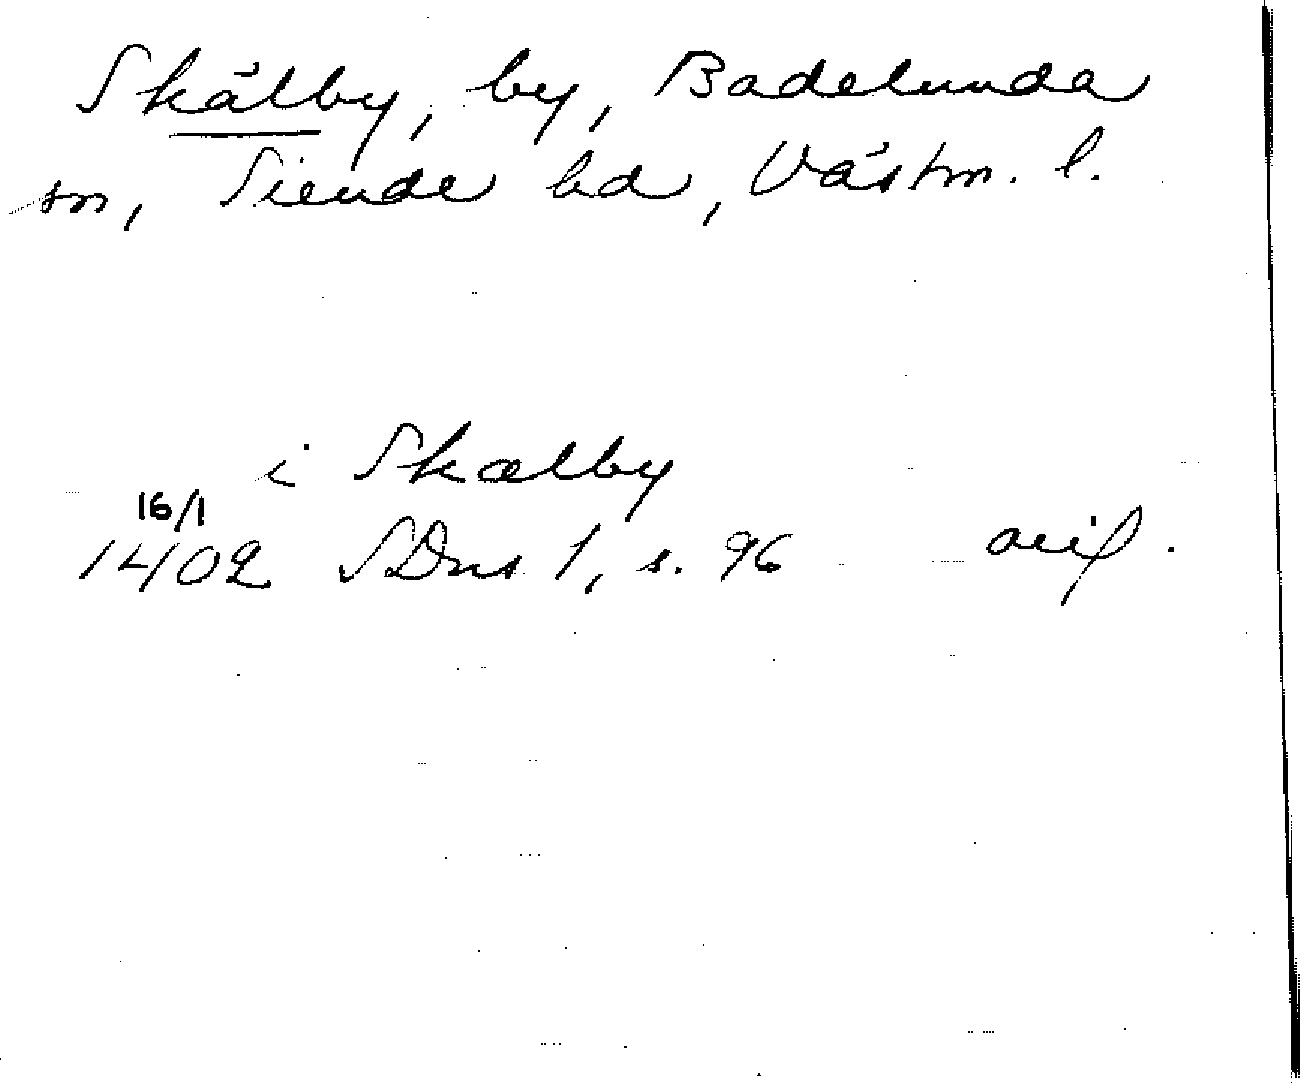 Skälby, by, Badelunda
sn, Siende hd, Västm. l.
i Skælby
16/1
1402 SDns 1, s. 96 avig.